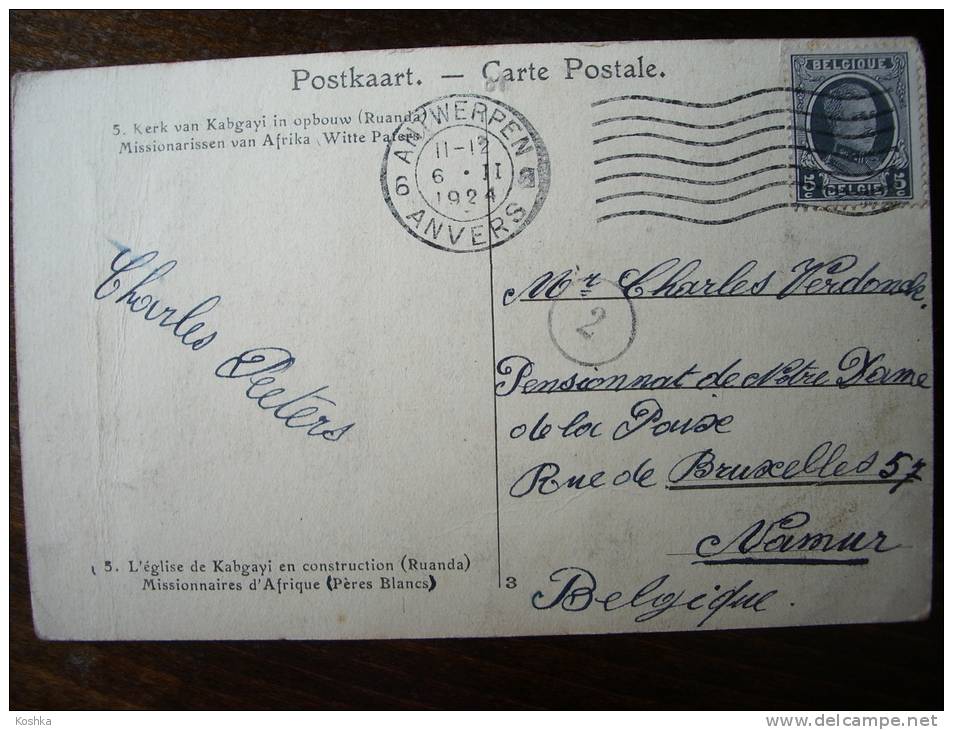 Postkaart. — Carte Postale.
5. Kerk van Kabgayi in opbouw (Ruanda)
Missionarissen van Afrika (Witte Paters)
6 ANTWERPEN
11-12
6 · II
1924
ANVERS
BELGIQUE
5c 5c
BELGIE
Charles Peeters
Mr Charles Verdonck.
2
Pensionnat de Notre Dame
de la Paix
Rue de Bruxelles 57
Namur
Belgique.
5. L'église de Kabgayi en construction (Ruanda)
Missionnaires d'Afrique (Pères Blancs)
3
Koshka
www.delcampe.net